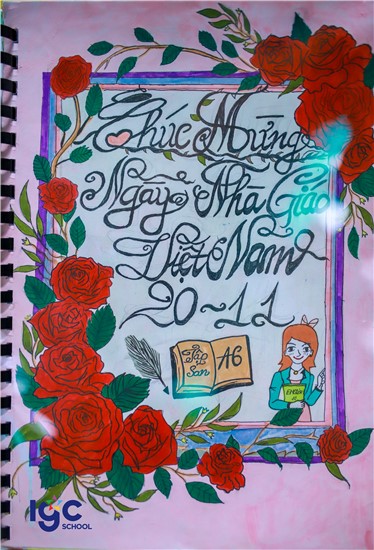 Chúc Mừng
Ngày Nhà Giáo
Việt Nam
20~11
Tập San
A6
ENGLISH
IGC
SCHOOL